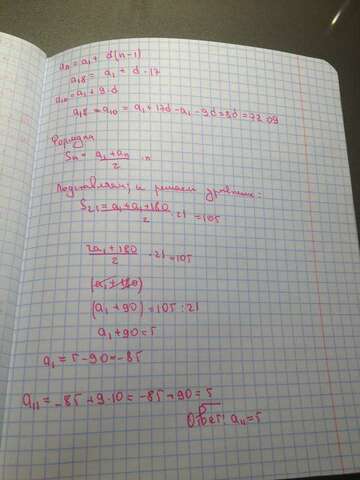 an = a1 + d(n-1)
a18 = a1 + d · 17
a10 = a1 + 9 · d
a18 = a10 = a1 + 17d - a1 - 9d = 8d = 72 d9
Формула
Sn = a1 + an / 2 · n
Подставляем и решаем уравнение:
S21 = a1 + a1 + 180 / 2 · 21 = 105
2a1 + 180 / 2 · 21 = 105
(a1 + 90) = 105 : 21
a1 + 90 = 5
a1 = 5 - 90 = -85
a11 = -85 + 9 · 10 = -85 + 90 = 5
Ответ: a11 = 5